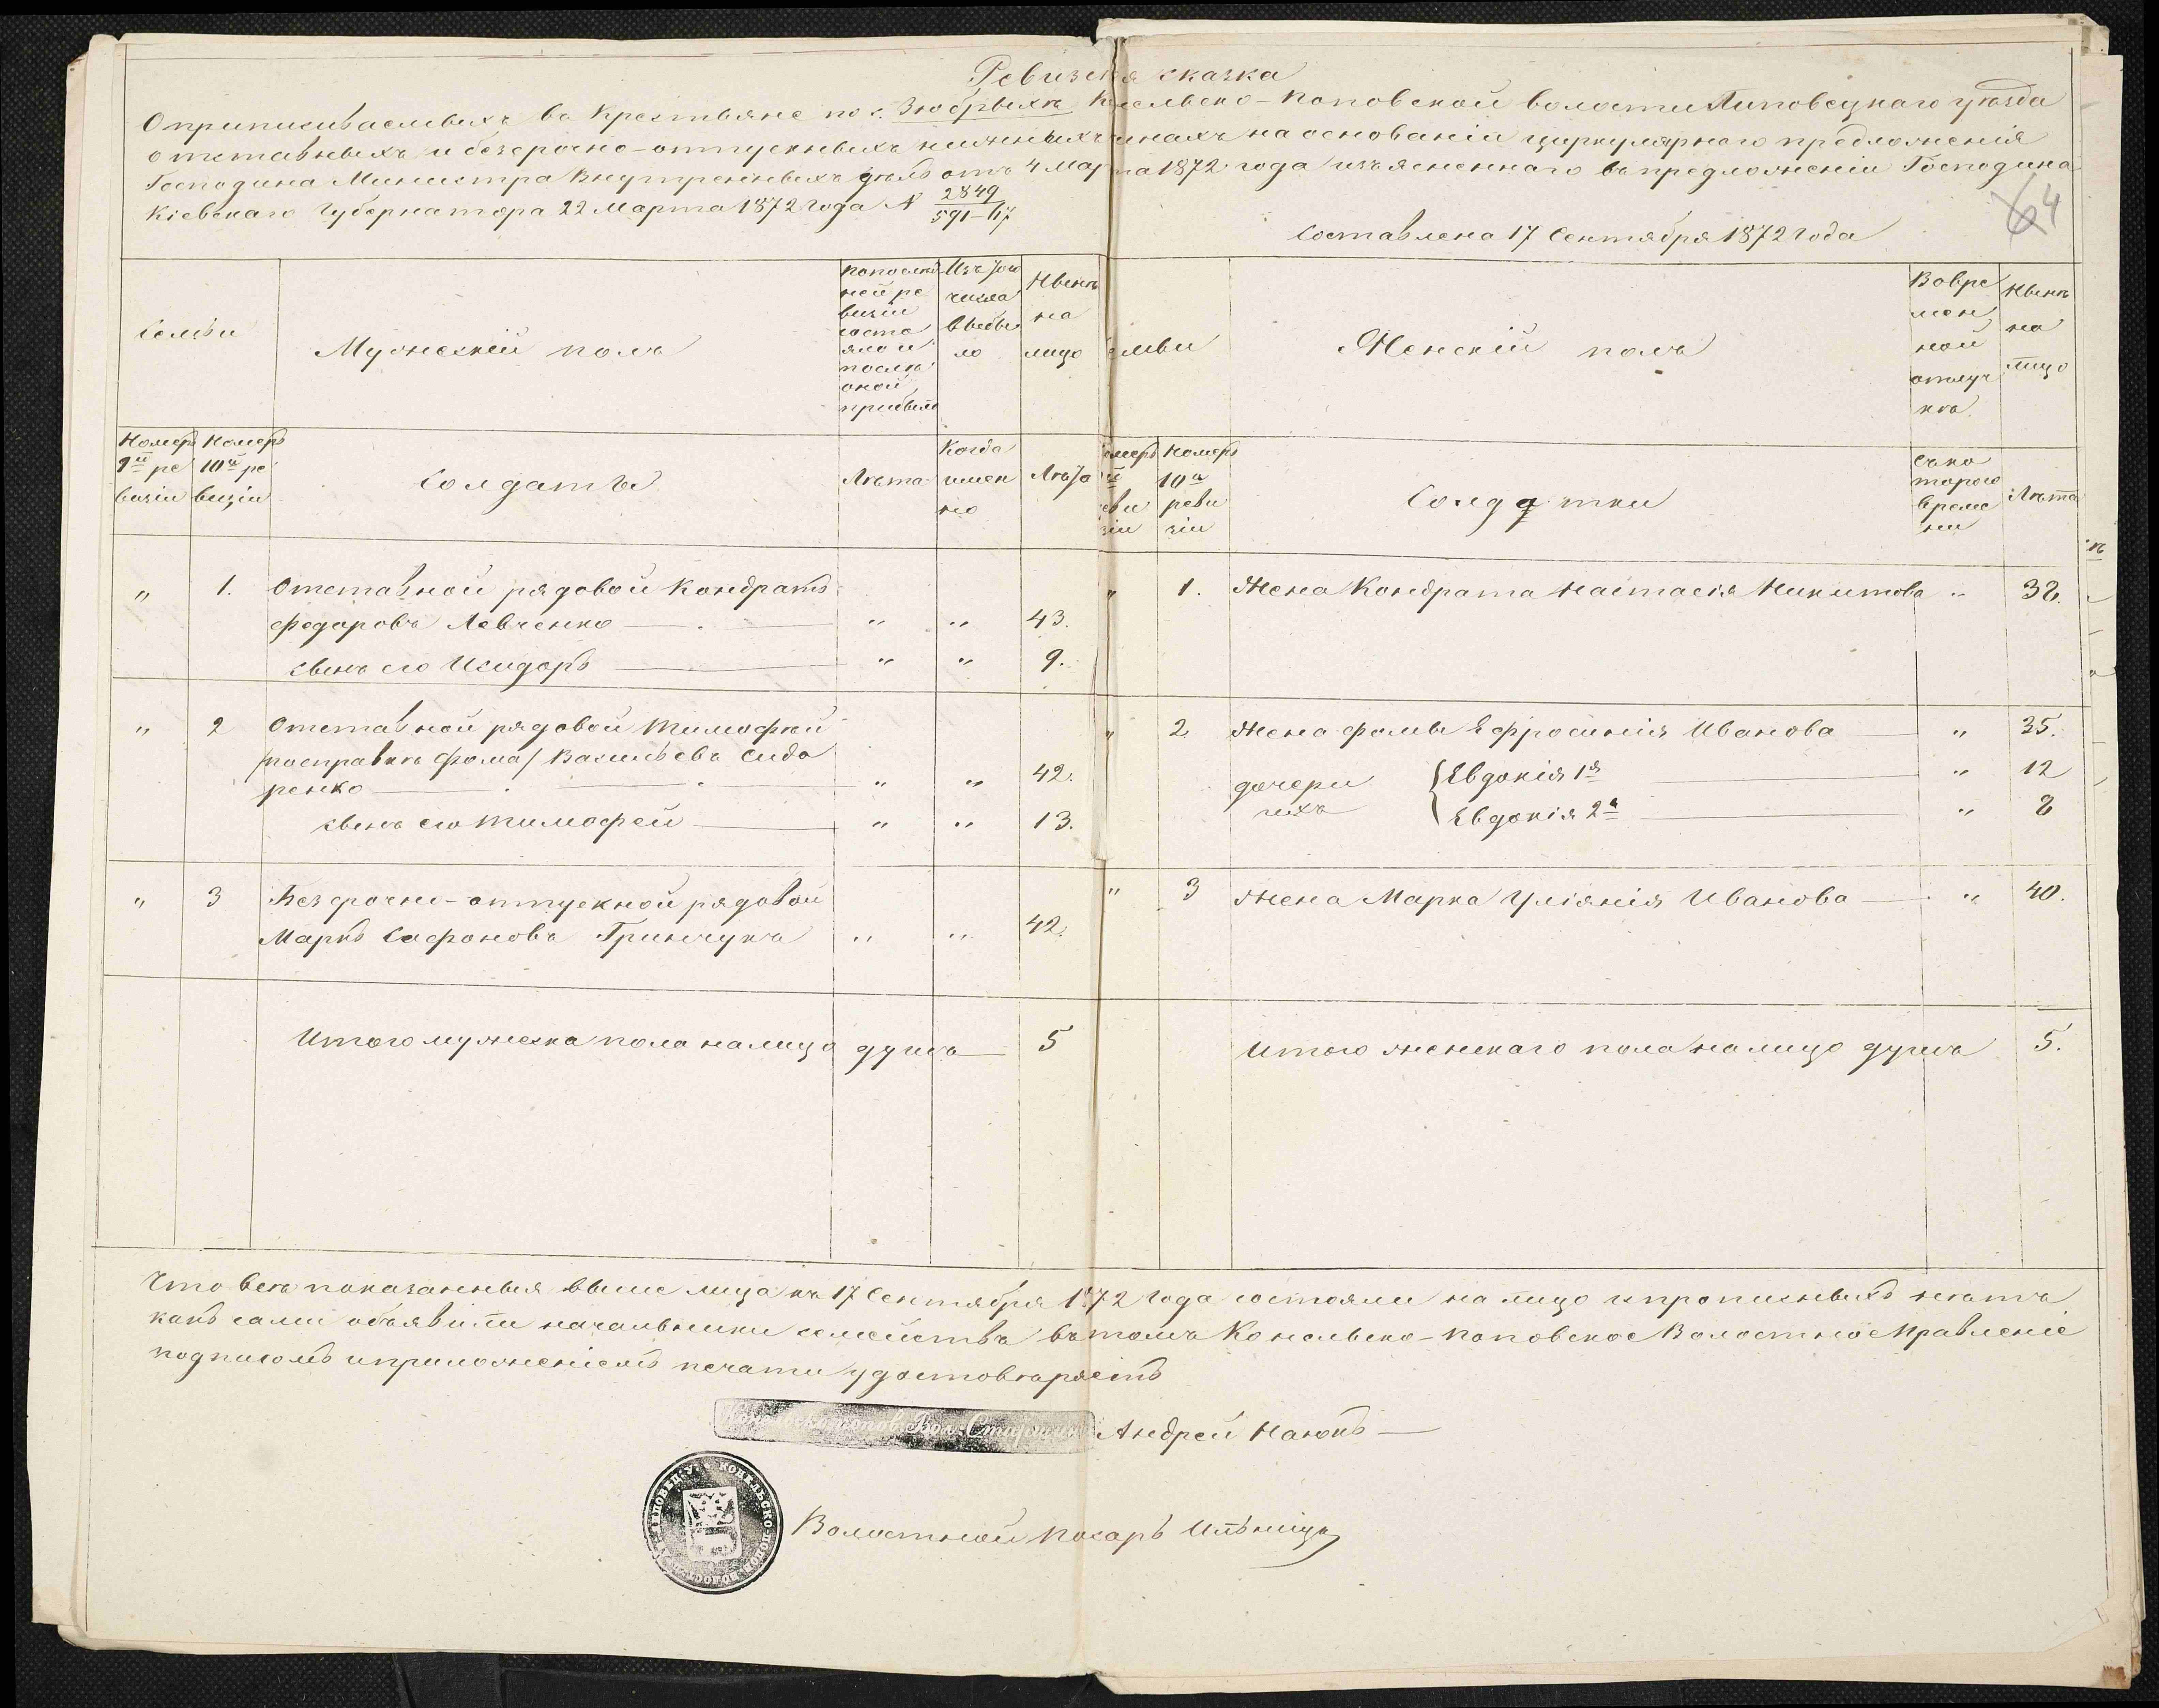 Ревизская сказка
О приписываемыхъ въ Крестьяне по с. Зюбрыхъ Конельско-Поповской волости Липовецкаго уѣзда
отставныхъ и безсрочно-отпускныхъ нижнихъ чинахъ на основаніи циркулярнаго предложенія
Господина Министра Внутреннихъ дѣлъ отъ 4 Марта 1872 года изъясненнаго въ предложеніи Господина
Кіевскаго Губернатора 22 Марта 1872 года №
2849
591-
64
Составлена 17 Сентября 1872 года
Семьи
Мужескій полъ
По послѣд
ней ре
визіи
состо
яло и
послѣ
оной
прибыло
Изъ того
числа
выбы
ло
Нынѣ
на
лицо
Семьи
Женскій полъ
Во вре
мен
ной
отлуч
кѣ
Нынѣ
на
лицо
Номеръ
9й ре
визіи
Номеръ
10й ре
визіи
Солдаты
Лѣта
Когда
имен
но
Лѣта
Номеръ
9й
реви
зіи
Номеръ
10й
реви
зіи
Солдатки
Съ ко
тораго
време
ни
Лѣта
" 1. Отставной рядовой Кондратъ
Федоровъ Левченко " " 43.
сынъ его Исидоръ " " 9.
" 1. Жена Кондрата Настасія Никитова " 32.
" 2 Отставной рядовой Тимофей
/поправкѣ Фома/ Васильевъ Сидо
ренко " " 42.
сынъ его Тимофей " " 13.
" 2 Жена Фомы Ефросинія Иванова " 35.
дочери
ихъ
Евдокія 1я " 12
Евдокія 2я " 8
" 3 Безсрочно-отпускной рядовой
Маркъ Сафоновъ Гринчукъ " " 42.
" 3 Жена Марка Уліянія Иванова " 40.
Итого мужеска пола на лицо душъ 5
Итого женскаго пола на лицо душъ 5.
Что всѣ показанныя выше лица къ 17 Сентября 1872 года состояли на лицо и прописныхъ нѣтъ
какъ сами объявили начальники семействъ въ томъ Конельско-Поповское Волостное Правленіе
подписомъ и приложеніемъ печати удостовѣряетъ
Конельскопопов: Вол: Старшина Андрей Наюкъ
КОНЕЛЬСКО-ПОПОВ ВОЛОСТ ЛИПОВЕЦ. У.
Волостной Писарь